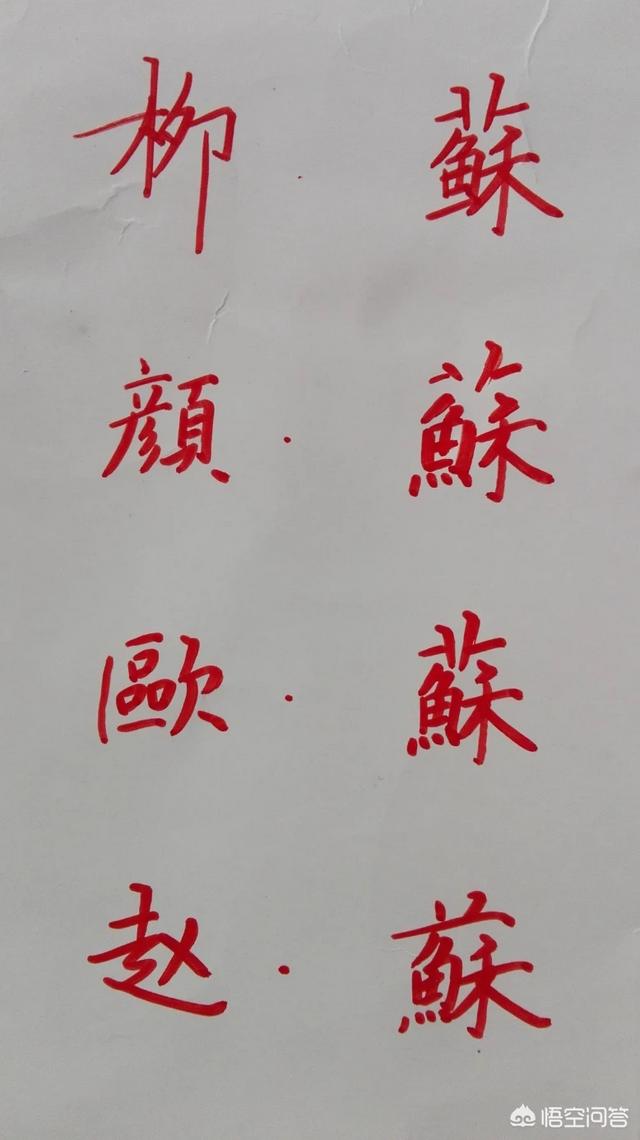 柳·蘇
顔·蘇
歐·蘇
赵·蘇
悟空问答